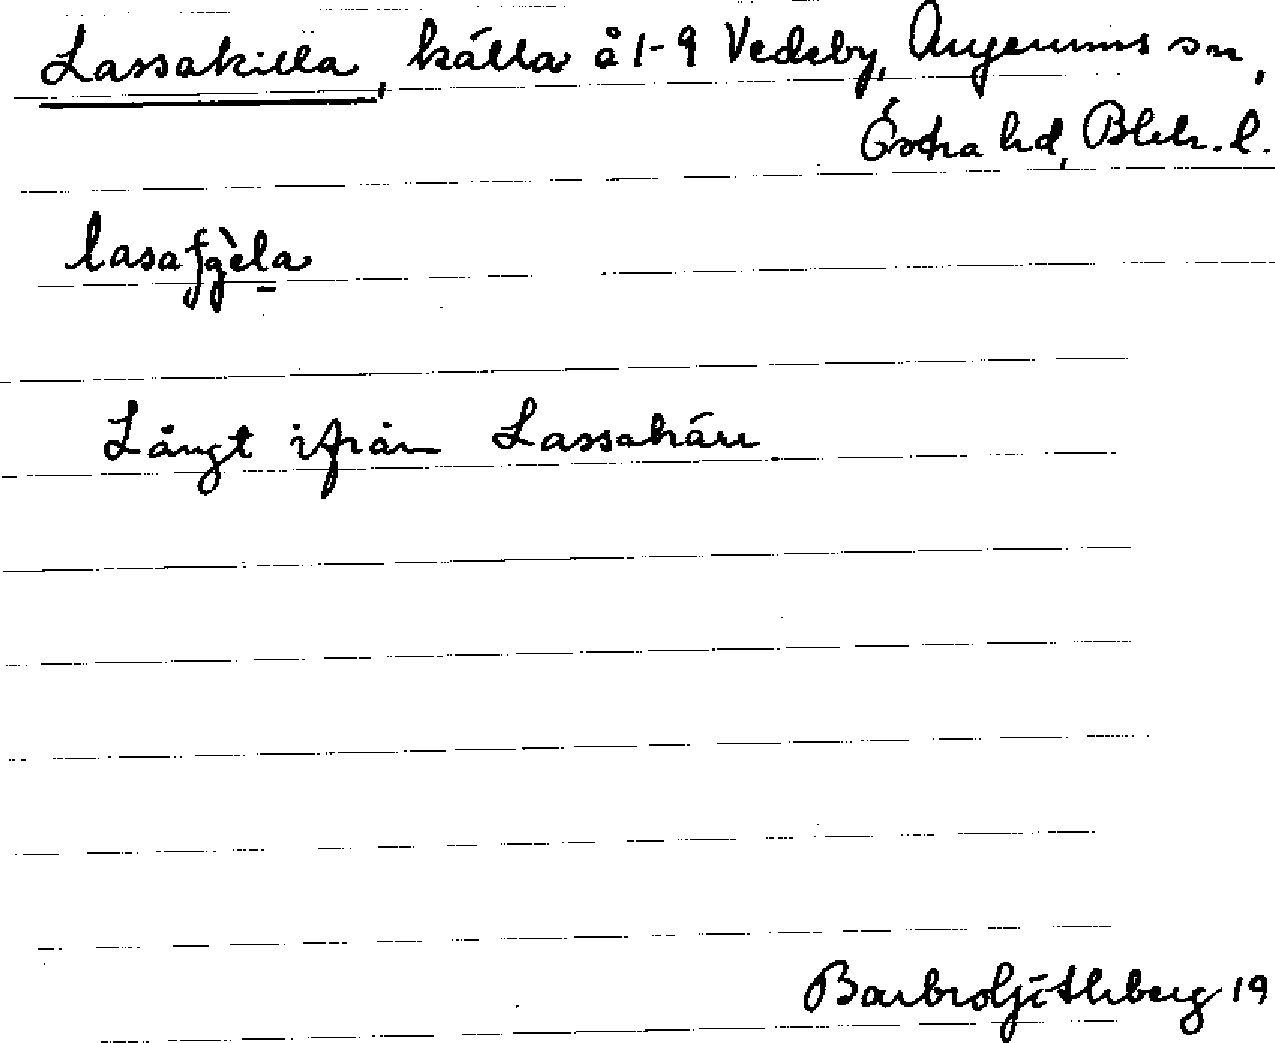 Lassakilla, källa å 1-9 Vedeby, Augerums sn,
Östra hd, Blek. l.
Långt ifrån Lassakärr
Barbro Götherberg 19